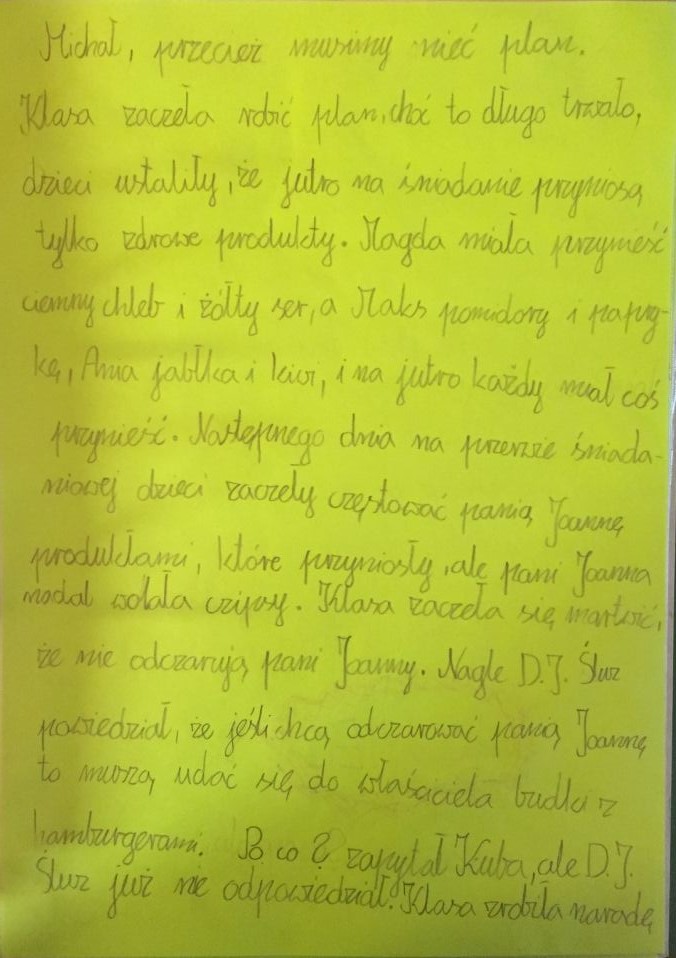 Michał, przecież musimy mieć plan.
Klasa zaczeła robić plan, choć to długo trwało,
dzieci ustaliły, że jutro na śniadanie przyniosą
tylko zdrowe produkty. Magda miała przynieść
ciemny chleb i żółty ser, a Maks pomidory i papry-
kę, Anna jabłka i kiwi, i na jutro każdy miał coś
przynieść. Następnego dnia na przerwie śniada-
niowej dzieci zaczeły częstować panią Joannę
produktami, które przyniosły, ale pani Joanna
nadal wolała czipsy. Klasa zaczeła się martwić,
że nie odczarują pani Joanny. Nagle D.J. Ślur
powiedział, że jeśli chcą odczarować panią Joannę
to muszą udać się do właściciela budki z
hamburgerami. Po co? zapytał Kuba, ale D.J.
Ślur już nie odpowiedział. Klasa zrobiła naradę